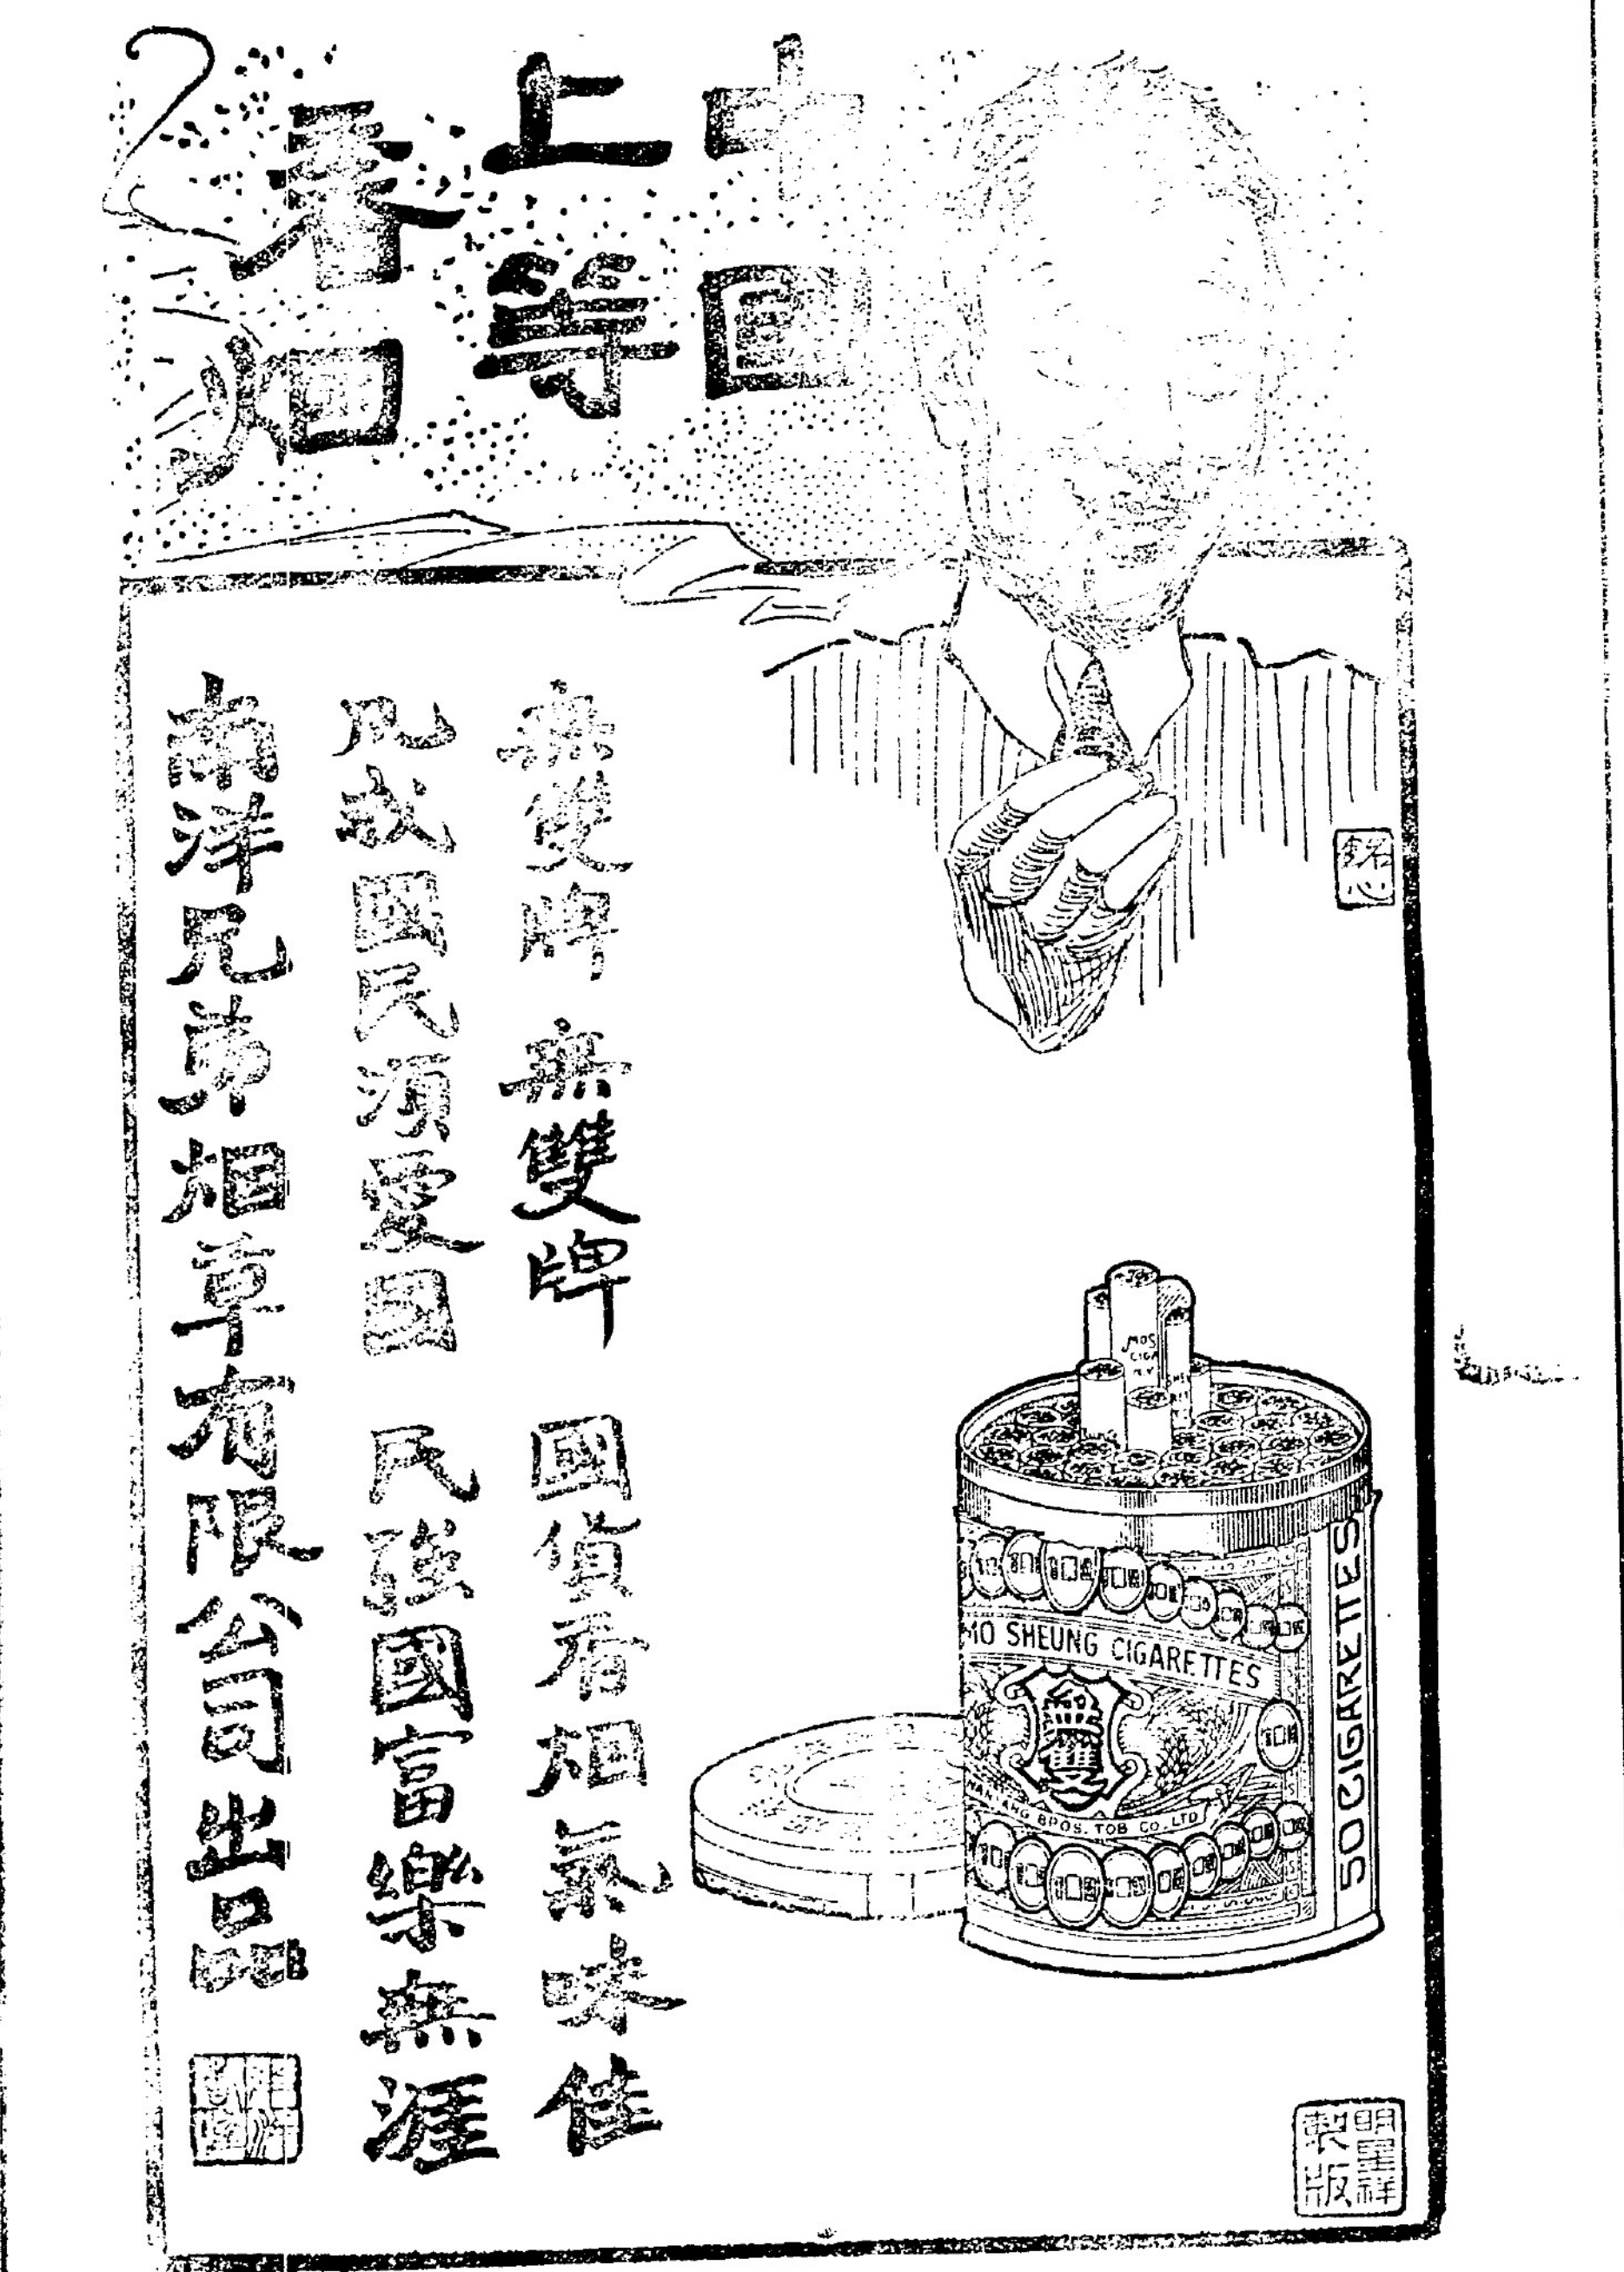 中國
上等
香烟
銘心
無雙牌 無雙牌 國貨香烟氣味佳
凡我國民須愛國 民強國富樂無涯
南洋兄弟烟草有限公司出品
MOS
CIGA
N.Y
MO SHEUNG CIGARETTES
無雙
NANYANG BROS. TOB CO. LTD
50 CIGARETTES
明星祥
製版